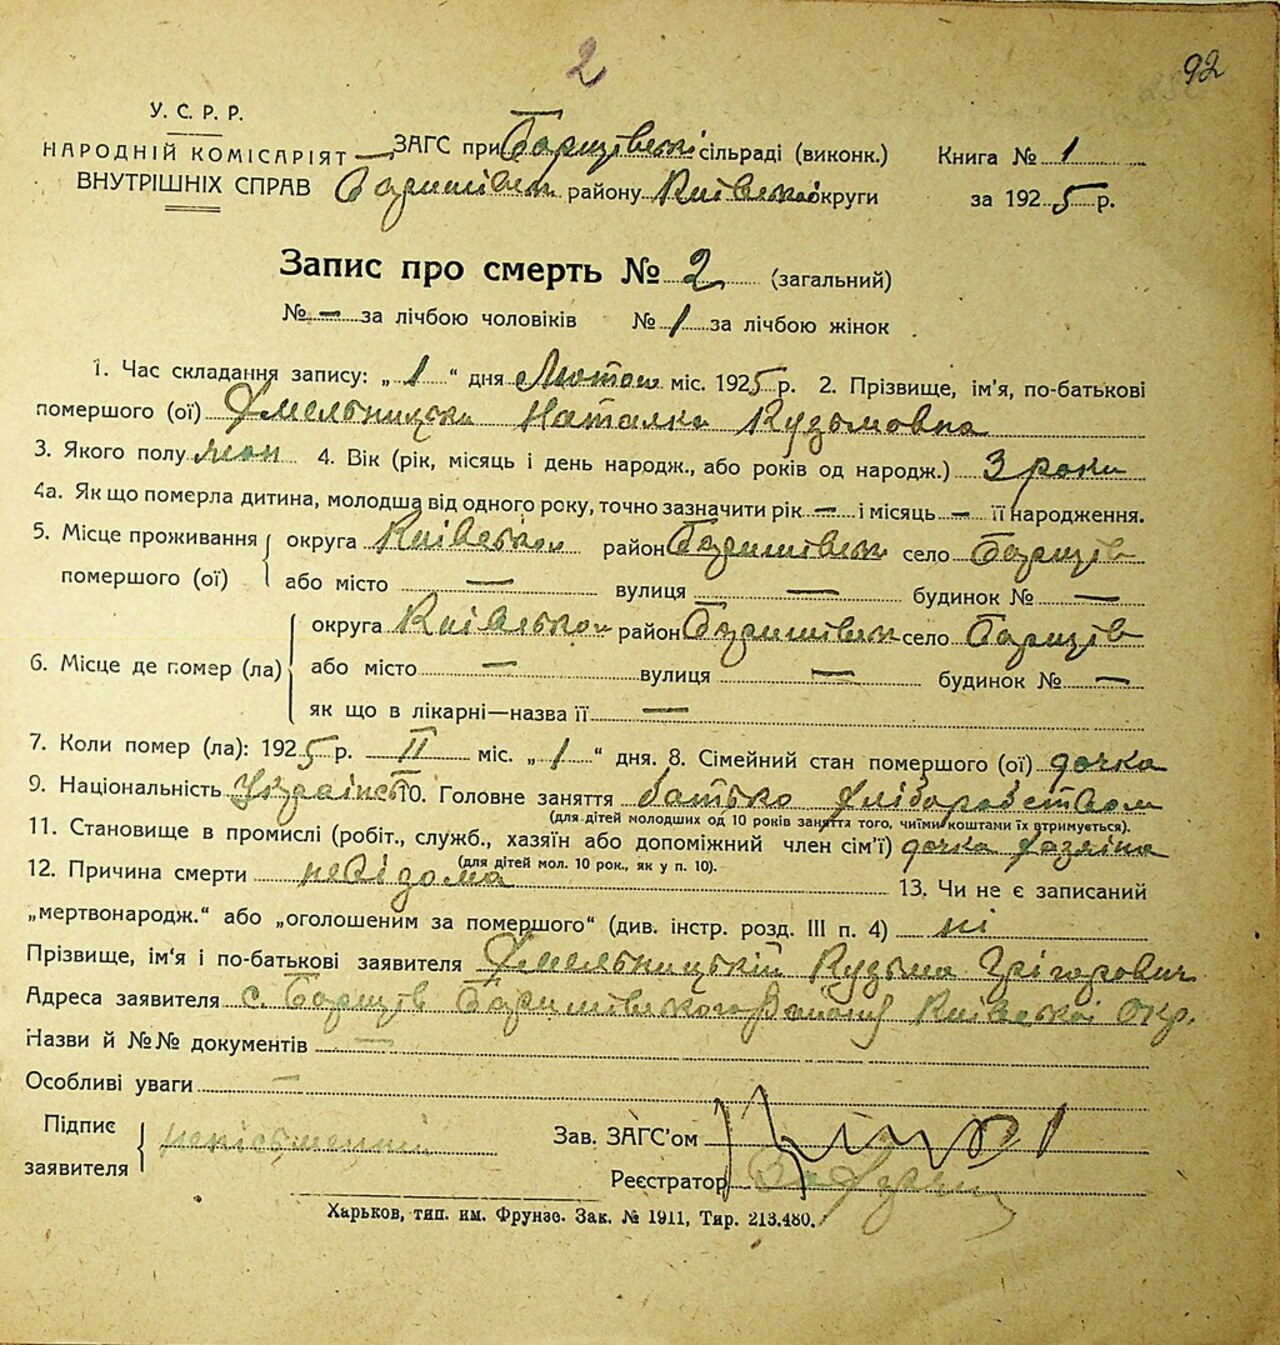 2
92
У. С. Р. Р.
НАРОДНІЙ КОМІСАРІЯТ
ВНУТРІШНІХ СПРАВ
ЗАГС при Барщівські сільраді (виконк.) Книга № 1
Баришівськ району Київської округи за 1925 р.
Запис про смерть № 2 (загальний)
№ — за лічбою чоловіків № 1 за лічбою жінок
1. Час складання запису: „ 1 “ дня Лютого міс. 1925 р. 2. Прізвище, ім'я, по-батькові
помершого (ої) Хмельницька Наталка Кузьмовна
3. Якого полу жон 4. Вік (рік, місяць і день народж., або років од народж.) 3 роки
4а. Як що померла дитина, молодша від одного року, точно зазначити рік — і місяць — її народження.
5. Місце проживання помершого (ої) округа Київською район Баришівськ село Барщів
або місто — вулиця — будинок № —
6. Місце де помер (ла) округа Київською район Баришівськ село Барщів
або місто — вулиця — будинок № —
як що в лікарні—назва її —
7. Коли помер (ла): 1925 р. II міс. „ 1 “ дня. 8. Сімейний стан помершого (ої) дочка
9. Національність 10. Головне заняття батько хліборобством
(для дітей молодших од 10 років заняття того, чиїми коштами їх втримується).
11. Становище в промислі (робіт., служб., хазяїн або допоміжний член сім'ї) дочка хазяїна
(для дітей мол. 10 рок., як у п. 10).
12. Причина смерти невідома 13. Чи не є записаний
„мертвонародж.“ або „оголошеним за помершого“ (див. інстр. розд. III п. 4) ні
Прізвище, ім'я і по-батькові заявителя Хмельницькій Кузьма Грігорович
Адреса заявителя с. Барщів Баришівського Району Київської Окр.
Назви й №№ документів —
Особливі уваги —
Підпис заявителя непісьменний
Зав. ЗАГС'ом
Реєстратор
Харьков, тип. им. Фрунзе. Зак. № 1911, Тир. 213.480.